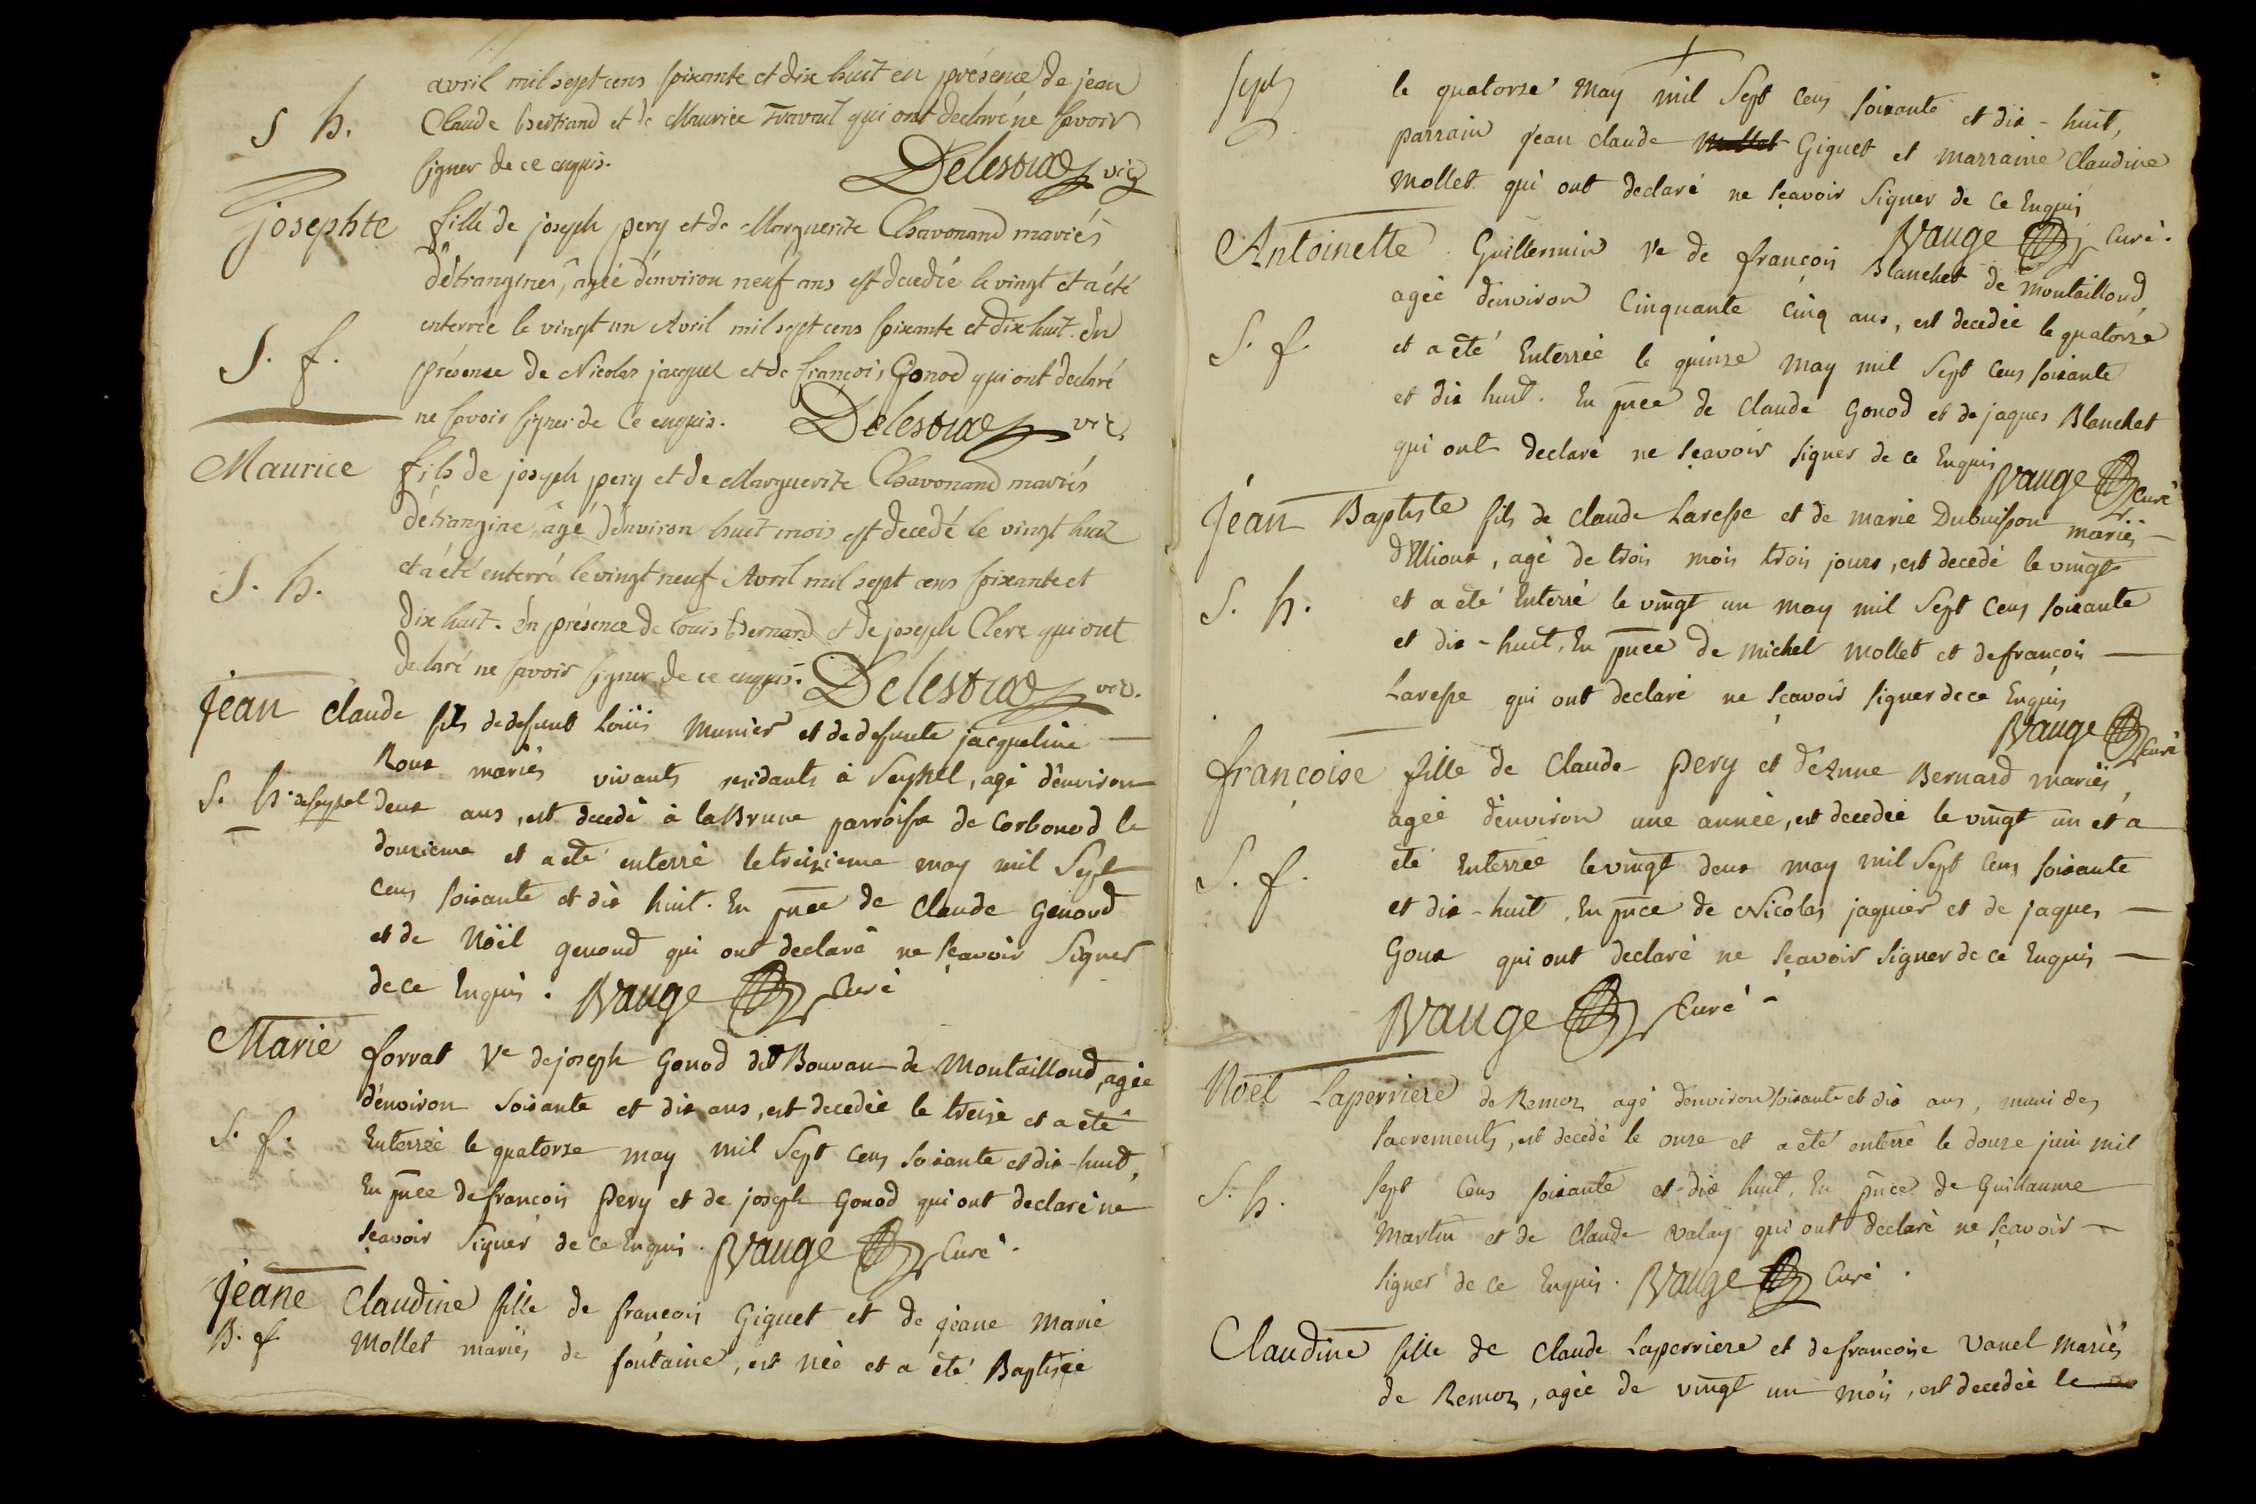 avril mil sept cens soixante et dix huit en présence de jean
S h.
Claude Bertrand et de Maurice Travout qui ont declaré ne savoir
signer de ce enquis. Delestraz vic
josephte fille de joseph pery et de Marguerite Chavonand mariés
d'étrangines, agée d'environ neuf ans est decedée le vingt et a été
enterrée le vingt un Avril mil sept cens soixante et dix huit. En
S. f.
présence de Nicolas jacquet et de francois Gonod qui ont declaré
ne savoir signer de Ce enquis. Delestraz vic.
Maurice fils de joseph pery et de Marguerite Chavonand mariés
d'étrangine, âgé d'environ huit mois est decedé le vingt huit
et a été enterré le vingt neuf Avril mil sept cens soixante et
S. h.
dix huit. En présence de Louis Bernard et de joseph Clerc qui ont
declaré ne savoir signer de ce enquis. Delestraz vic.
jean Claude fils de defunt Loüis Munier et de defunte jacqueline
Roux mariés vivants residants à Seyssel, agé d'environ
S. h. de Seyssel deux ans, est decedé à la Brune parroisse de Corbonod le
douzieme et a eté enterré le treizieme may mil Sept
Cens soixante et dix huit. En pnce de Claude Genoud
et de Noël genoud qui ont declaré ne sçavoir Signer
de ce Enquis. Vauge Curé
Marie forrat Ve de joseph Gonod dit Bouvan de Montailloud, agée
d'environ Soixante et dix ans, est decedée le treize et a eté
S. f.
Enterrée le quatorze may mil Sept Cens Soixante et dix-huit,
En pnce de francois Pery et de joseph Gonod qui ont declaré ne
sçavoir Signer de Ce Enquis. Vauge Curé.
jeane Claudine fille de francois Giguet et de jeane Marie
B. f. Mollet mariés de fontaine, est née et a eté Baptisée
Sept
le quatorze may mil Sept Cens soixante et dix-huit,
parrain jean claude Mollet Giguet et marraine Claudine
Mollet qui ont declaré ne sçavoir Signer de Ce Enquis
Vauge Curé.
Antoinette Guillermin Ve de françois Blanchet de Montailloud,
agée d'environ Cinquante Cinq ans, est decedée le quatorze
S. f.
et a eté Enterrée le quinze may mil Sept Cens soixante
et dix huit. En pnce de Claude Gonod et de jaques Blanchet
qui ont declaré ne sçavoir signer de ce Enquis Vauge Curé
jean Baptiste fils de Claude Laresse et de marie Dubuisson mariés
agé de trois mois trois jours, est decedé le vingt
S. h.
et a eté Enterré le vingt un may mil Sept Cens soixante
et dix-huit, En pnce de michel mollet et de françois
Laresse qui ont declaré ne sçavoir signer de ce Enquis
Vauge Curé
françoise fille de Claude Pery et d'Anne Bernard mariés,
agée d'environ une année, est decedée le vingt un et a
S. f.
eté Enterrée le vingt deux may mil Sept Cens soixante
et dix-huit, En pnce de Nicolas jaquier et de jaques
Goux qui ont declaré ne sçavoir signer de ce Enquis
Vauge Curé
Noël Laperriere de Remoz agé d'environ soixante et dix ans, muni des
sacrements, est decedé le onze et a eté enterré le douze juin mil
S. h.
sept Cens soixante et dix huit, En pnce de Guillaume
Martin et de Claude Valay qui ont declaré ne sçavoir
signer de ce Enquis. Vauge Curé.
Claudine fille de Claude Laperriere et de francoise Vanel mariés
de Remoz, agée de vingt un mois, est decedée le